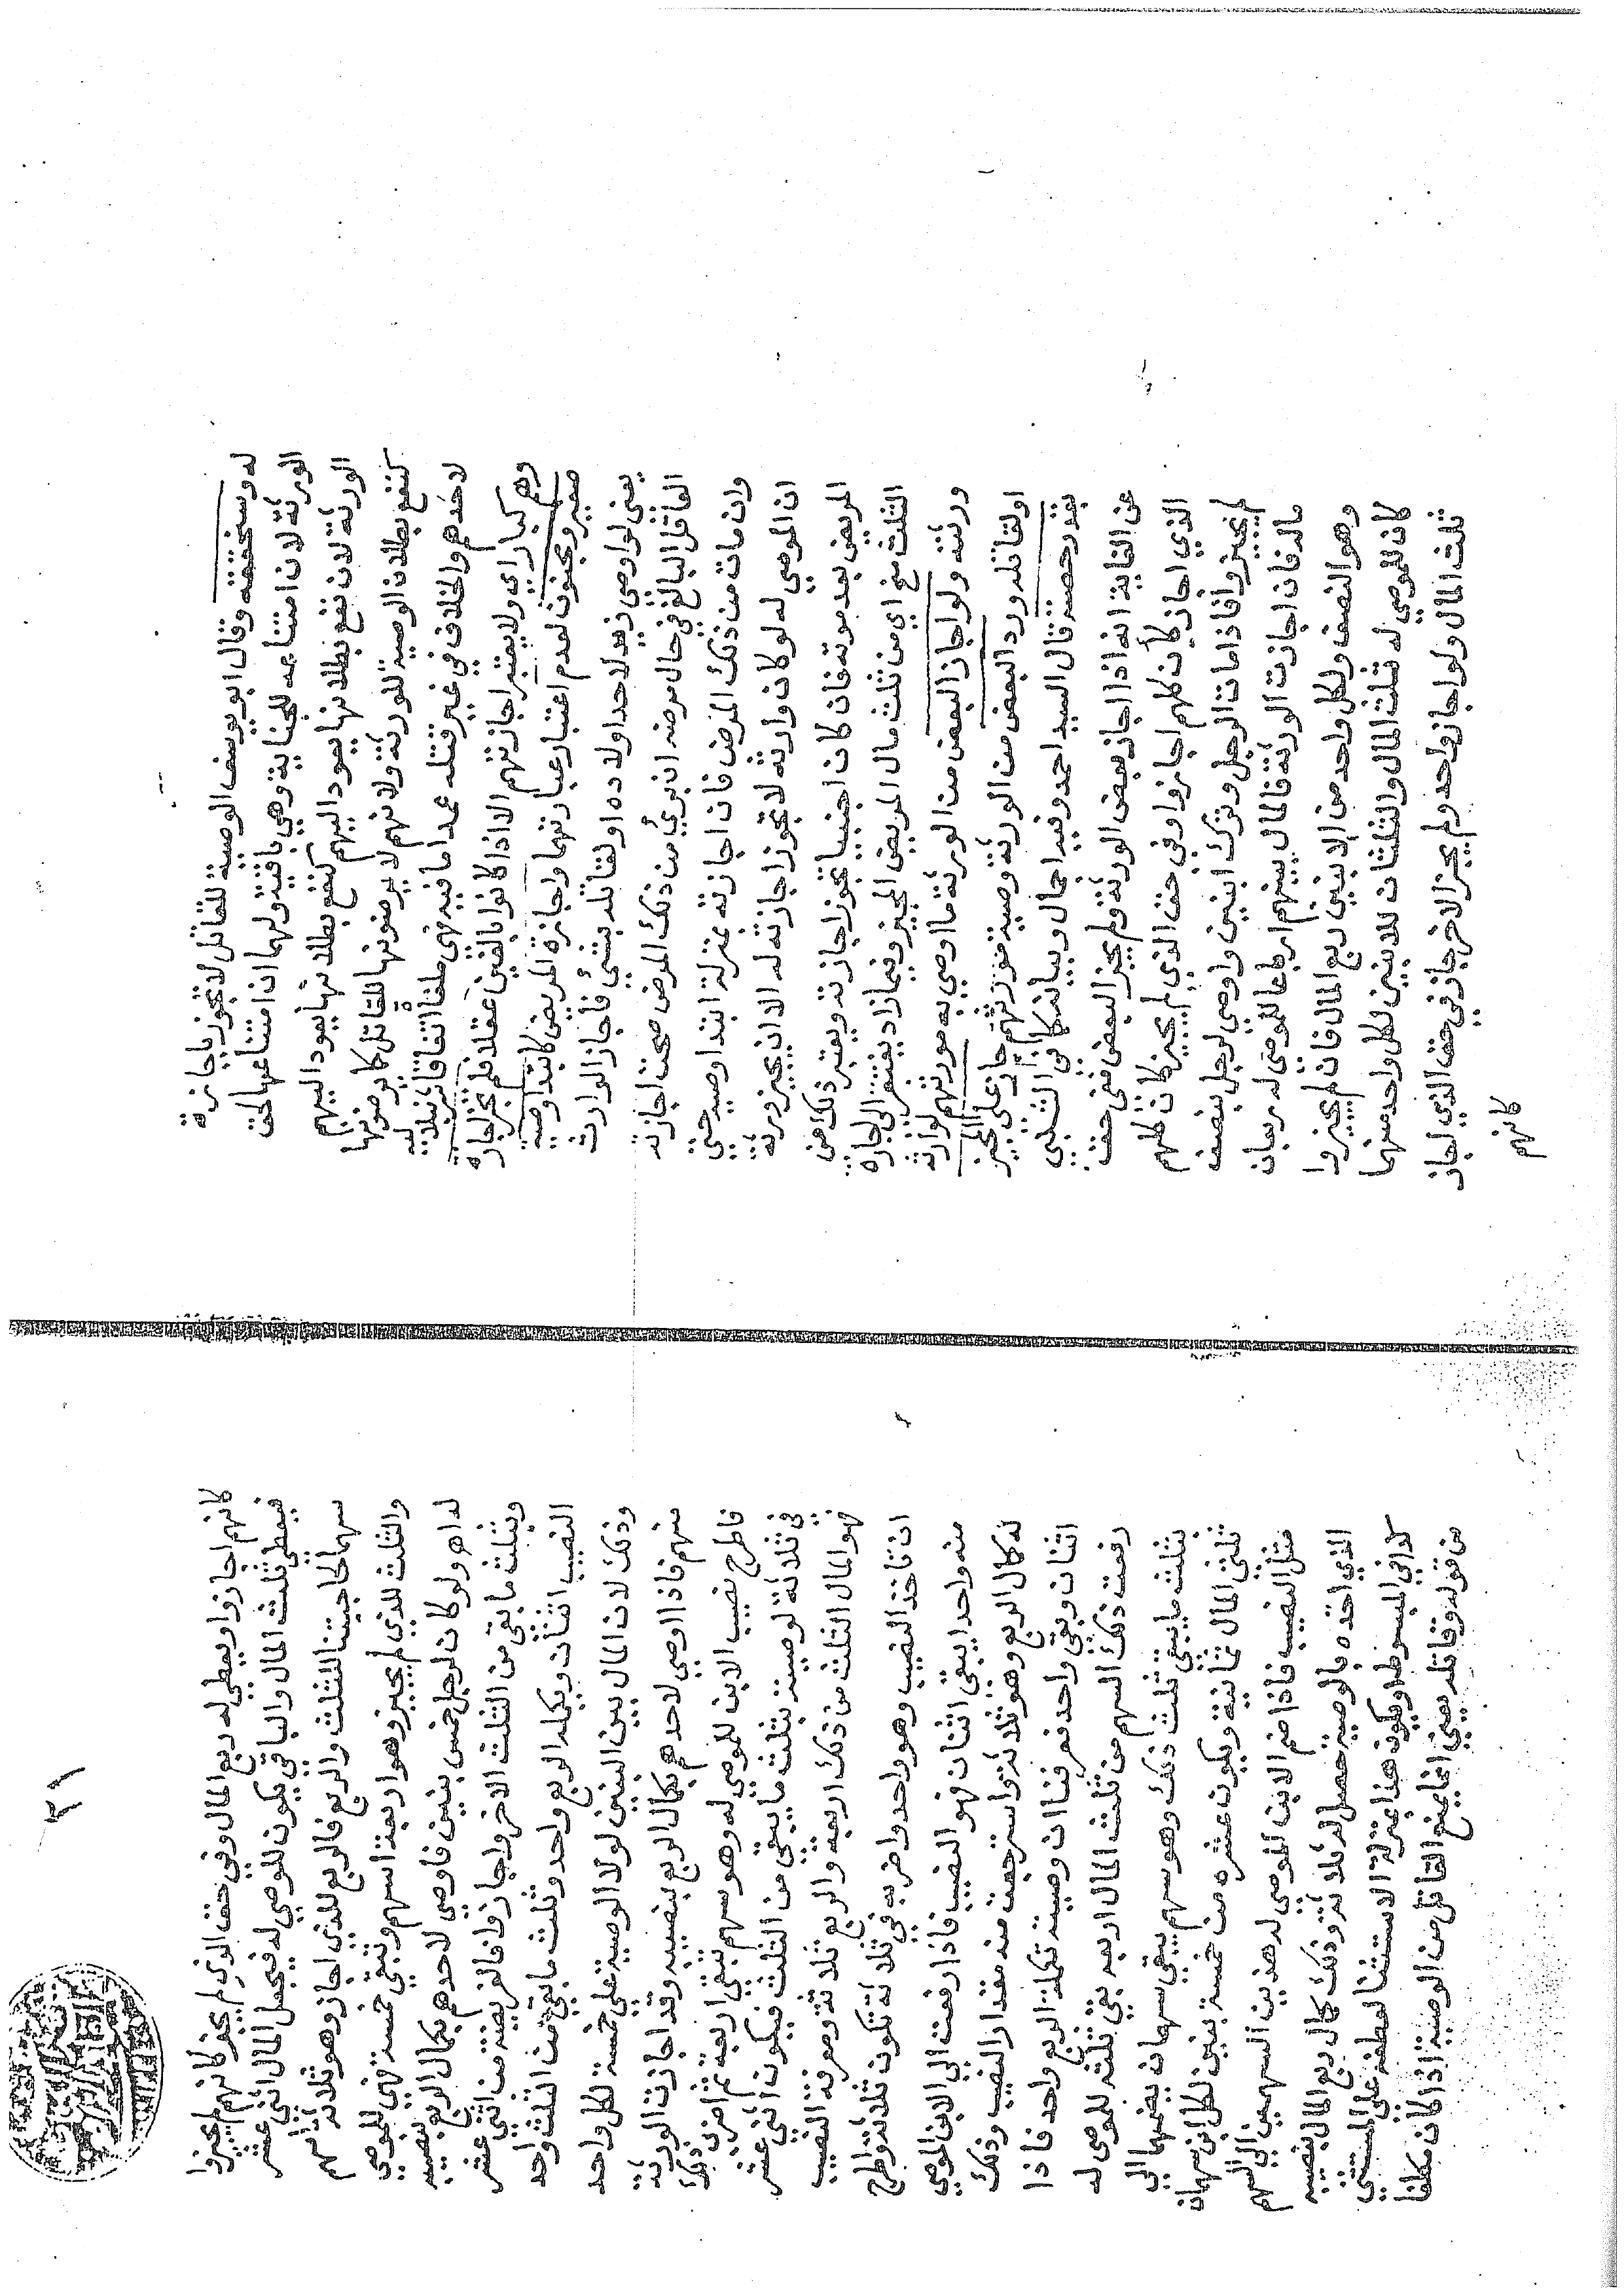 له وستحققه وقال ابو يوسف الوصية للقاتل لا تجوز باجازة
الورثة لان امتناعه للجناية وهي باقية ولهما ان امتناعها لحق
الورثة لان نفع بطلانها يعود اليهم كنفع بطلانها يعود اليهم
كنفع بطلان الوصية للورثة ولانهم لا يرضونها للقاتل كما يرضونها
لاحدهم والخلاف في غير قتله عمدا ما فيه نهى ملغا اتفاقا
وهم كبار اي ولا يعتبر اجازتهم الا اذا كانوا بالغين عقلا فلم تجز اجازة
صغير ومجنون لعدم اعتبار عبارتهما واجازة المريض كابتدا وصية
يعني لو اوصى زيد لاحد اولاده او لقاتله بشيء فأجاز الوارث
العاقل البالغ في حال مرضه ان برئ من ذلك المرض صحت اجازته
وان مات من ذلك المرض فان اجازته بمنزلة ابتدا وصية حتى
ان الموصى له لو كان وارثه لا تجوز اجازته له الا ان يجيز ورثة
المريض بعد موته فان كان اجنبيا تجوز اجازته ويعتبر ذلك من
الثلث منح اي من ثلث مال المريض المجيز وفيما زاد يفتقر الى اجازة
ورثته ولو اجاز البعض من الورثة ما اوصى به مورثهم لوارثه
او لقاتله ورد البعض من الورثة وصية مورثهم جاز على المجيز
بقدر حصته قال السيد احمد وفيه اجمال وبيانه كما في الشلبي
عن الغاية انه اذا اجاز بعض الورثة ولم يجز البعض ففي حق
الذي اجاز كأن كلهم اجازوا وفي حق الذي لم يجيز كان كلهم
لم يجيزوا فاذا مات الرجل وترك ابنين واوصى لرجل بنصف
ماله فان اجازت الورثة فالمال بينهم ارباعا للموصى له ربعان
وهو النصف ولكل واحد من الابنين ربع المال فان لم يجيزوا
كان للموصى له ثلث المال والثلثان للابنين لكل واحد منهما
ثلث المال ولو اجاز واحد ولم يجز الاخر جاز في حق الذي اجاز
كانهم
٣١
كانهم اجازوا ويعطى له ربع المال وفي حق الذي لم يجز كانهم لم يجيزوا
فيعطى ثلث المال والباقي يكون للموصى له فيجعل المال اثني عشر
سهما لحاجتنا للثلث والربع فالربع للذي اجاز وهو ثلاثة اسهم
والثلث للذي لم يجيز وهو اربعة اسهم وتبقى خمسة فهي للموصى
له اه ولو كان لرجل خمس بنين فاوصى لاحدهم بكمال الربع بنصيبه
وبثلث ما بقى من الثلث الاخر واجازوا فالفريضة من اثني عشر
النصيب اثنان ويكمله الربع واحد وثلث ما بقى من الثلث واحد
وذلك لان المال بين البنين لولا الوصية على خمسة لكل واحد
منهم فاذا اوصى لاحدهم بكمال الربع بنصيبه وقد اجازت الورثة
فاطرح نصيب الابن للموصى له وهو سهم تبقى اربعة ثم اضرب ذلك
في ثلاثة لوصيته بثلث ما يبقى من الثلث فيكون اثني عشر
فهو المال الثلث من ذلك اربعة والربع ثلاثة ومعرفة النصيب
ان تاخذ النصيب وهو واحد واضربه في ثلاثة تكون ثلاثة واطرح
منه واحدا يبقى اثنان فهو النصيب فاذا رفعت الى الابن الموصى
له كمال الربع وهو ثلاثة واسترجعت منه مقدار النصيب وذلك
اثنان وبقى واحد فعرفنا ان وصيته تكملة الربع واحد فاذا
رفعت ذلك السهم من ثلث المال اربعة بقي ثلثه للموصى له
بثلث ما يبقى ثلث ذلك وهو سهم يبقى سهمان يضمهما الى
ثلثي المال ثمانية ويكون عشره من خمسة بنين لكل ابن سهمان
مثل النصيب فاذا ضم الابن الموصى له هذين السهمين الى السهم
الذي اخذه بالوصية حصل له ثلاثة وذلك كمال ربع المال بنصيبه
كذا في المبسوط او يكون هذا بمنزلة الاستثنا لعطفه على المستثنى
من قوله وقاتله يعني انما يمنع القاتل من الوصية اذا كان مكلفا